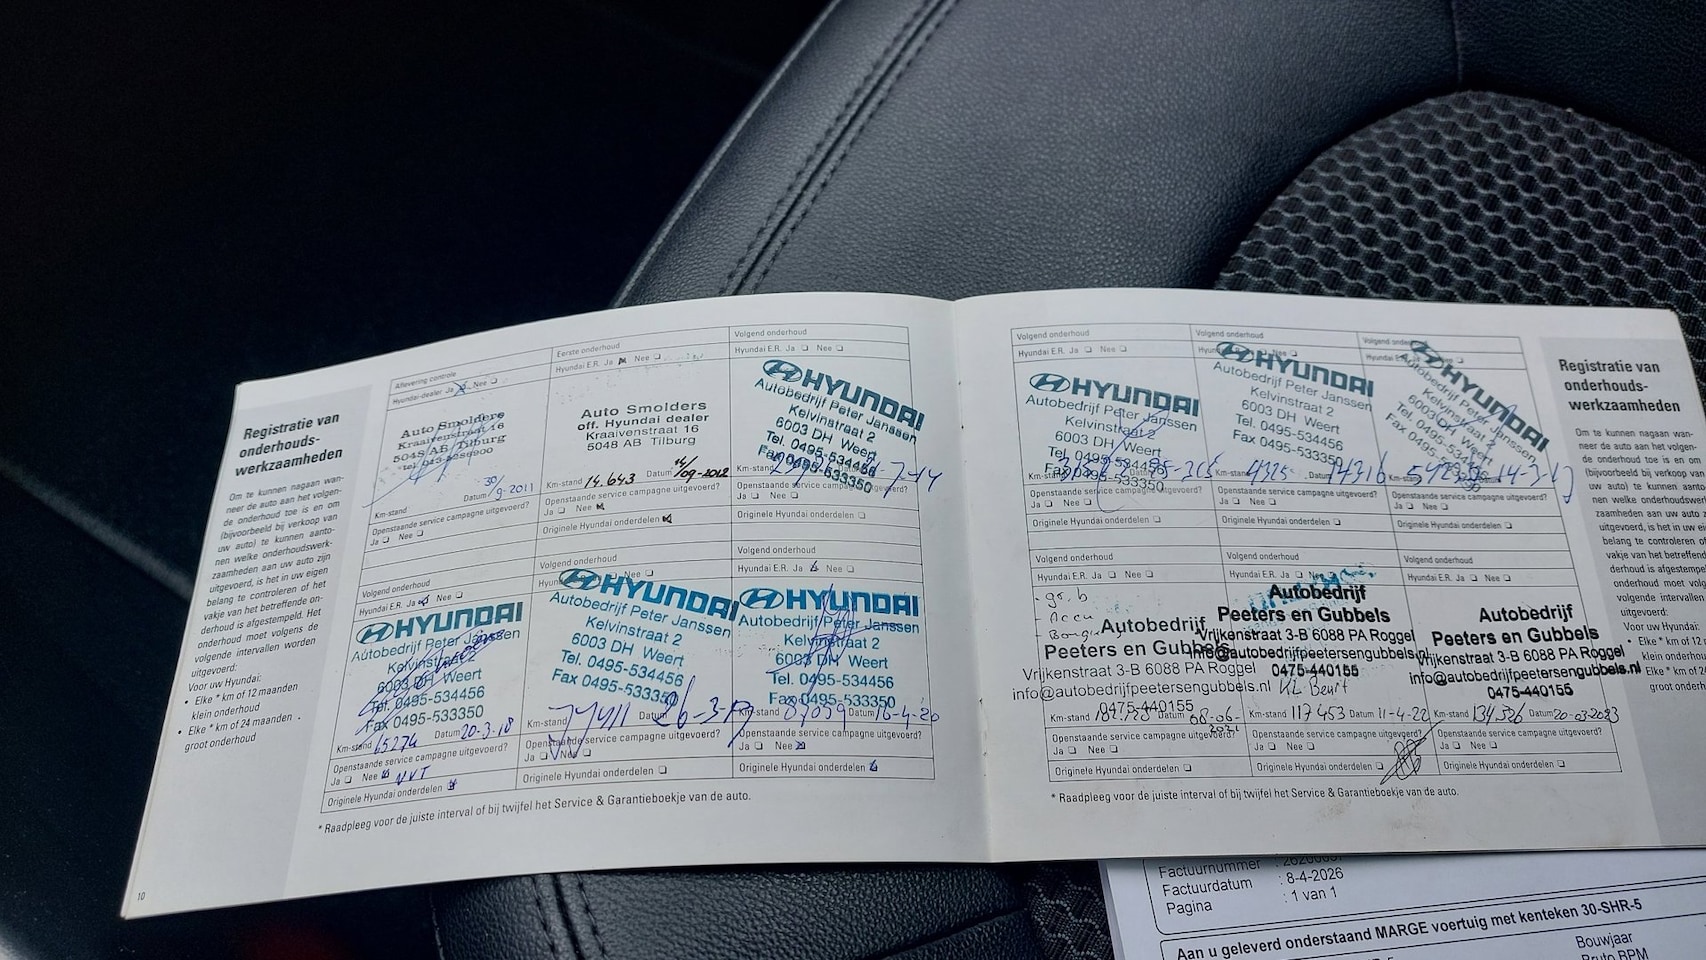 Registratie van
onderhouds-
werkzaamheden
Om te kunnen nagaan wan-
neer de auto aan het volgen-
de onderhoud toe is en om
(bijvoorbeeld bij verkoop van
uw auto) te kunnen aanto-
nen welke onderhoudswerk-
zaamheden aan uw auto zijn
uitgevoerd, is het in uw eigen
belang te controleren of het
vakje van het betreffende on-
derhoud is afgestempeld. Het
onderhoud moet volgens de
volgende intervallen worden
uitgevoerd:
Voor uw Hyundai:
• Elke * km of 12 maanden
klein onderhoud
• Elke * km of 24 maanden
groot onderhoud
10
Aflevering controle
Hyundai-dealer Ja Nee
Auto Smolders
Kraaivenstraat 16
5048 AB Tilburg
Km-stand Datum 30/9-2011
Openstaande service campagne uitgevoerd?
Ja Nee
Eerste onderhoud
Hyundai E.R. Ja Nee
Auto Smolders
off. Hyundai dealer
Kraaivenstraat 16
5048 AB Tilburg
Km-stand 14.643 Datum 14/09-2012
Openstaande service campagne uitgevoerd?
Ja Nee
Originele Hyundai onderdelen
Volgend onderhoud
Hyundai E.R. Ja Nee
HYUNDAI
Autobedrijf Peter Janssen
Kelvinstraat 2
6003 DH Weert
Tel. 0495-534456
Fax 0495-533350
Km-stand
Openstaande service campagne uitgevoerd?
Ja Nee
Originele Hyundai onderdelen
Volgend onderhoud
Hyundai E.R. Ja Nee
HYUNDAI
Autobedrijf Peter Janssen
Kelvinstraat 2
6003 DH Weert
Tel. 0495-534456
Fax 0495-533350
Km-stand 65274 Datum 20-3-18
Openstaande service campagne uitgevoerd?
Ja Nee NVT
Originele Hyundai onderdelen
Volgend onderhoud
Nee
HYUNDAI
Autobedrijf Peter Janssen
Kelvinstraat 2
6003 DH Weert
Tel. 0495-534456
Fax 0495-533350
Km-stand Datum 26-3-19
Openstaande service campagne uitgevoerd?
Ja Nee
Originele Hyundai onderdelen
Volgend onderhoud
Hyundai E.R. Ja Nee
HYUNDAI
Autobedrijf Peter Janssen
Kelvinstraat 2
6003 DH Weert
Tel. 0495-534456
Fax 0495-533350
Km-stand 87059 Datum 16-4-20
Openstaande service campagne uitgevoerd?
Ja Nee
Originele Hyundai onderdelen
* Raadpleeg voor de juiste interval of bij twijfel het Service & Garantieboekje van de auto.
Volgend onderhoud
Hyundai E.R. Ja Nee
HYUNDAI
Autobedrijf Peter Janssen
Kelvinstraat 2
6003 DH Weert
Tel. 0495-534456
Fax 0495-533350
Openstaande service campagne uitgevoerd?
Ja Nee
Originele Hyundai onderdelen
Volgend onderhoud
HYUNDAI
Autobedrijf Peter Janssen
Kelvinstraat 2
6003 DH Weert
Tel. 0495-534456
Fax 0495-533350
Km-stand
Openstaande service campagne uitgevoerd?
Ja Nee
Originele Hyundai onderdelen
Volgend onderhoud
HYUNDAI
Autobedrijf Peter Janssen
Kelvinstraat 2
6003 DH Weert
Tel. 0495-534456
Openstaande service campagne uitgevoerd?
Ja Nee
Originele Hyundai onderdelen
Volgend onderhoud
Hyundai E.R. Ja Nee
gr. b
Accu
Autobedrijf
Peeters en Gubbels
Vrijkenstraat 3-B 6088 PA Roggel
info@autobedrijfpeetersengubbels.nl
0475-440155
Km-stand Datum 08-06-2021
Openstaande service campagne uitgevoerd?
Ja Nee
Originele Hyundai onderdelen
Volgend onderhoud
Hyundai E.R. Ja Nee
Autobedrijf
Peeters en Gubbels
Vrijkenstraat 3-B 6088 PA Roggel
info@autobedrijfpeetersengubbels.nl
0475-440155
KL Beurt
Km-stand 117453 Datum 11-4-22
Openstaande service campagne uitgevoerd?
Ja Nee
Originele Hyundai onderdelen
Volgend onderhoud
Hyundai E.R. Ja Nee
Autobedrijf
Peeters en Gubbels
Vrijkenstraat 3-B 6088 PA Roggel
info@autobedrijfpeetersengubbels.nl
0475-440155
Km-stand 134.526 Datum 20-03-2023
Openstaande service campagne uitgevoerd?
Ja Nee
Originele Hyundai onderdelen
* Raadpleeg voor de juiste interval of bij twijfel het Service & Garantieboekje van de auto.
Registratie van
onderhouds-
werkzaamheden
Om te kunnen nagaan wan-
neer de auto aan het volgen-
de onderhoud toe is en om
(bijvoorbeeld bij verkoop van
uw auto) te kunnen aanto-
nen welke onderhoudswerk-
zaamheden aan uw auto
uitgevoerd, is het in uw eigen
belang te controleren of
vakje van het betreffende
derhoud is afgestempeld.
onderhoud moet
volgende intervallen
uitgevoerd:
Voor uw Hyundai:
• Elke * km of 12
klein onderhoud
Elke * km of 24
groot onderhoud
Factuurnummer :
Factuurdatum : 8-4-2026
Pagina : 1 van 1
Aan u geleverd onderstaand MARGE voertuig met kenteken 30-SHR-5
Bouwjaar
Bruto BPM